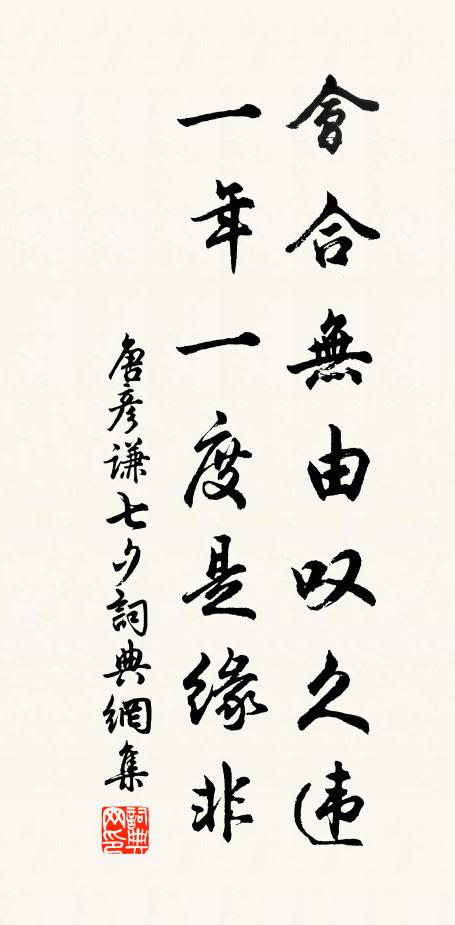 會合無由叹久违
一年一度是緣非
唐彥謙七夕詞典網集
詞典网印